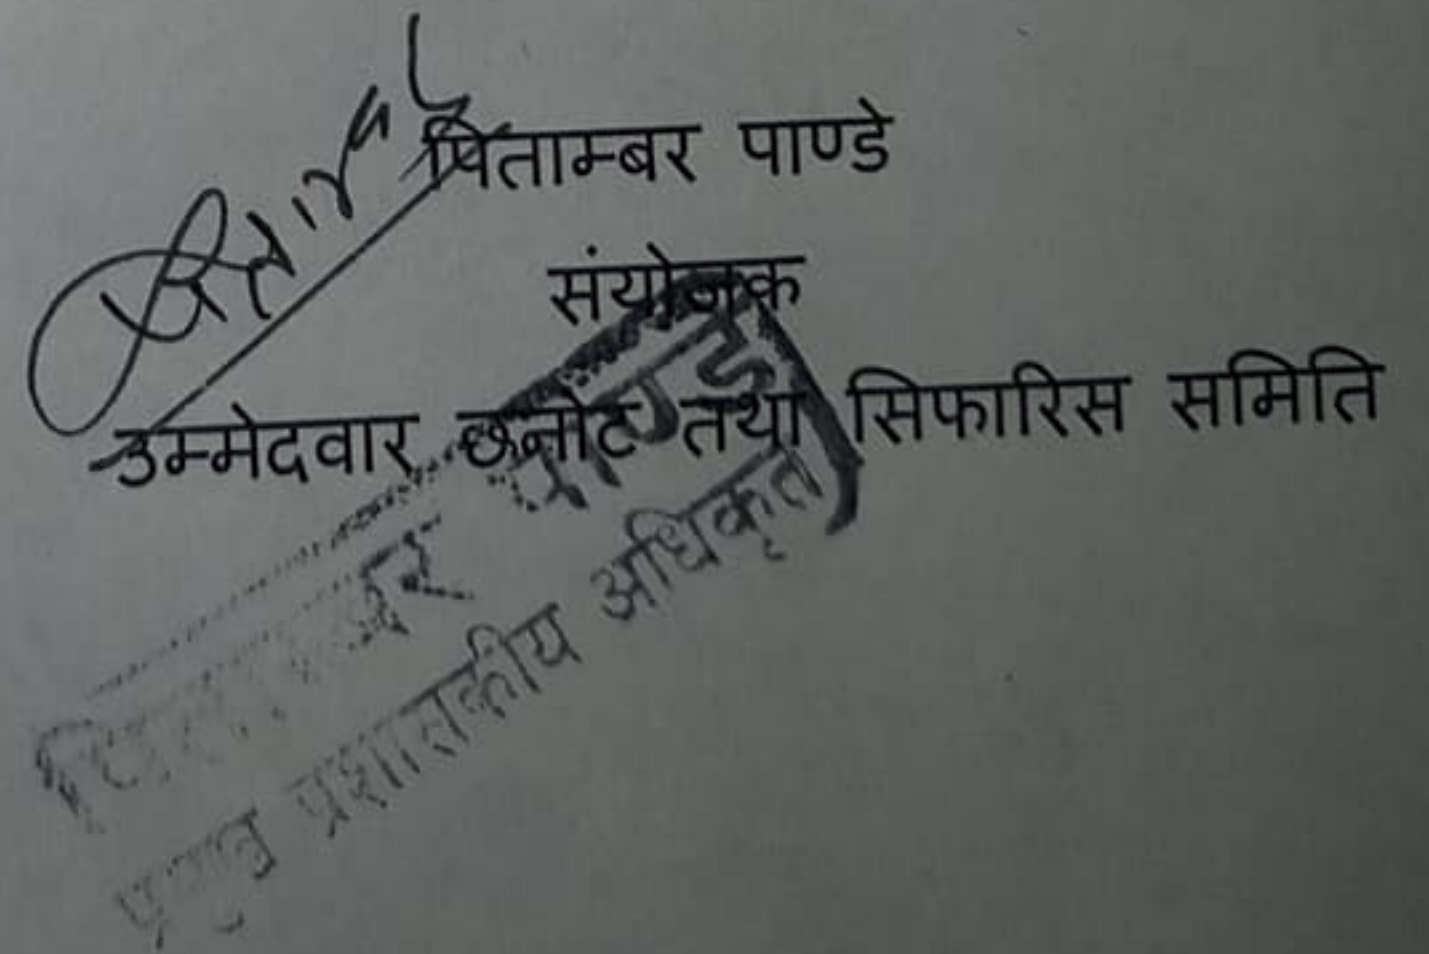 पिताम्बर पाण्डे
संयोजक
उम्मेदवार छनोट तथा सिफारिस समिति
पिताम्बर पाण्डे
प्रमुख प्रशासकीय अधिकृत